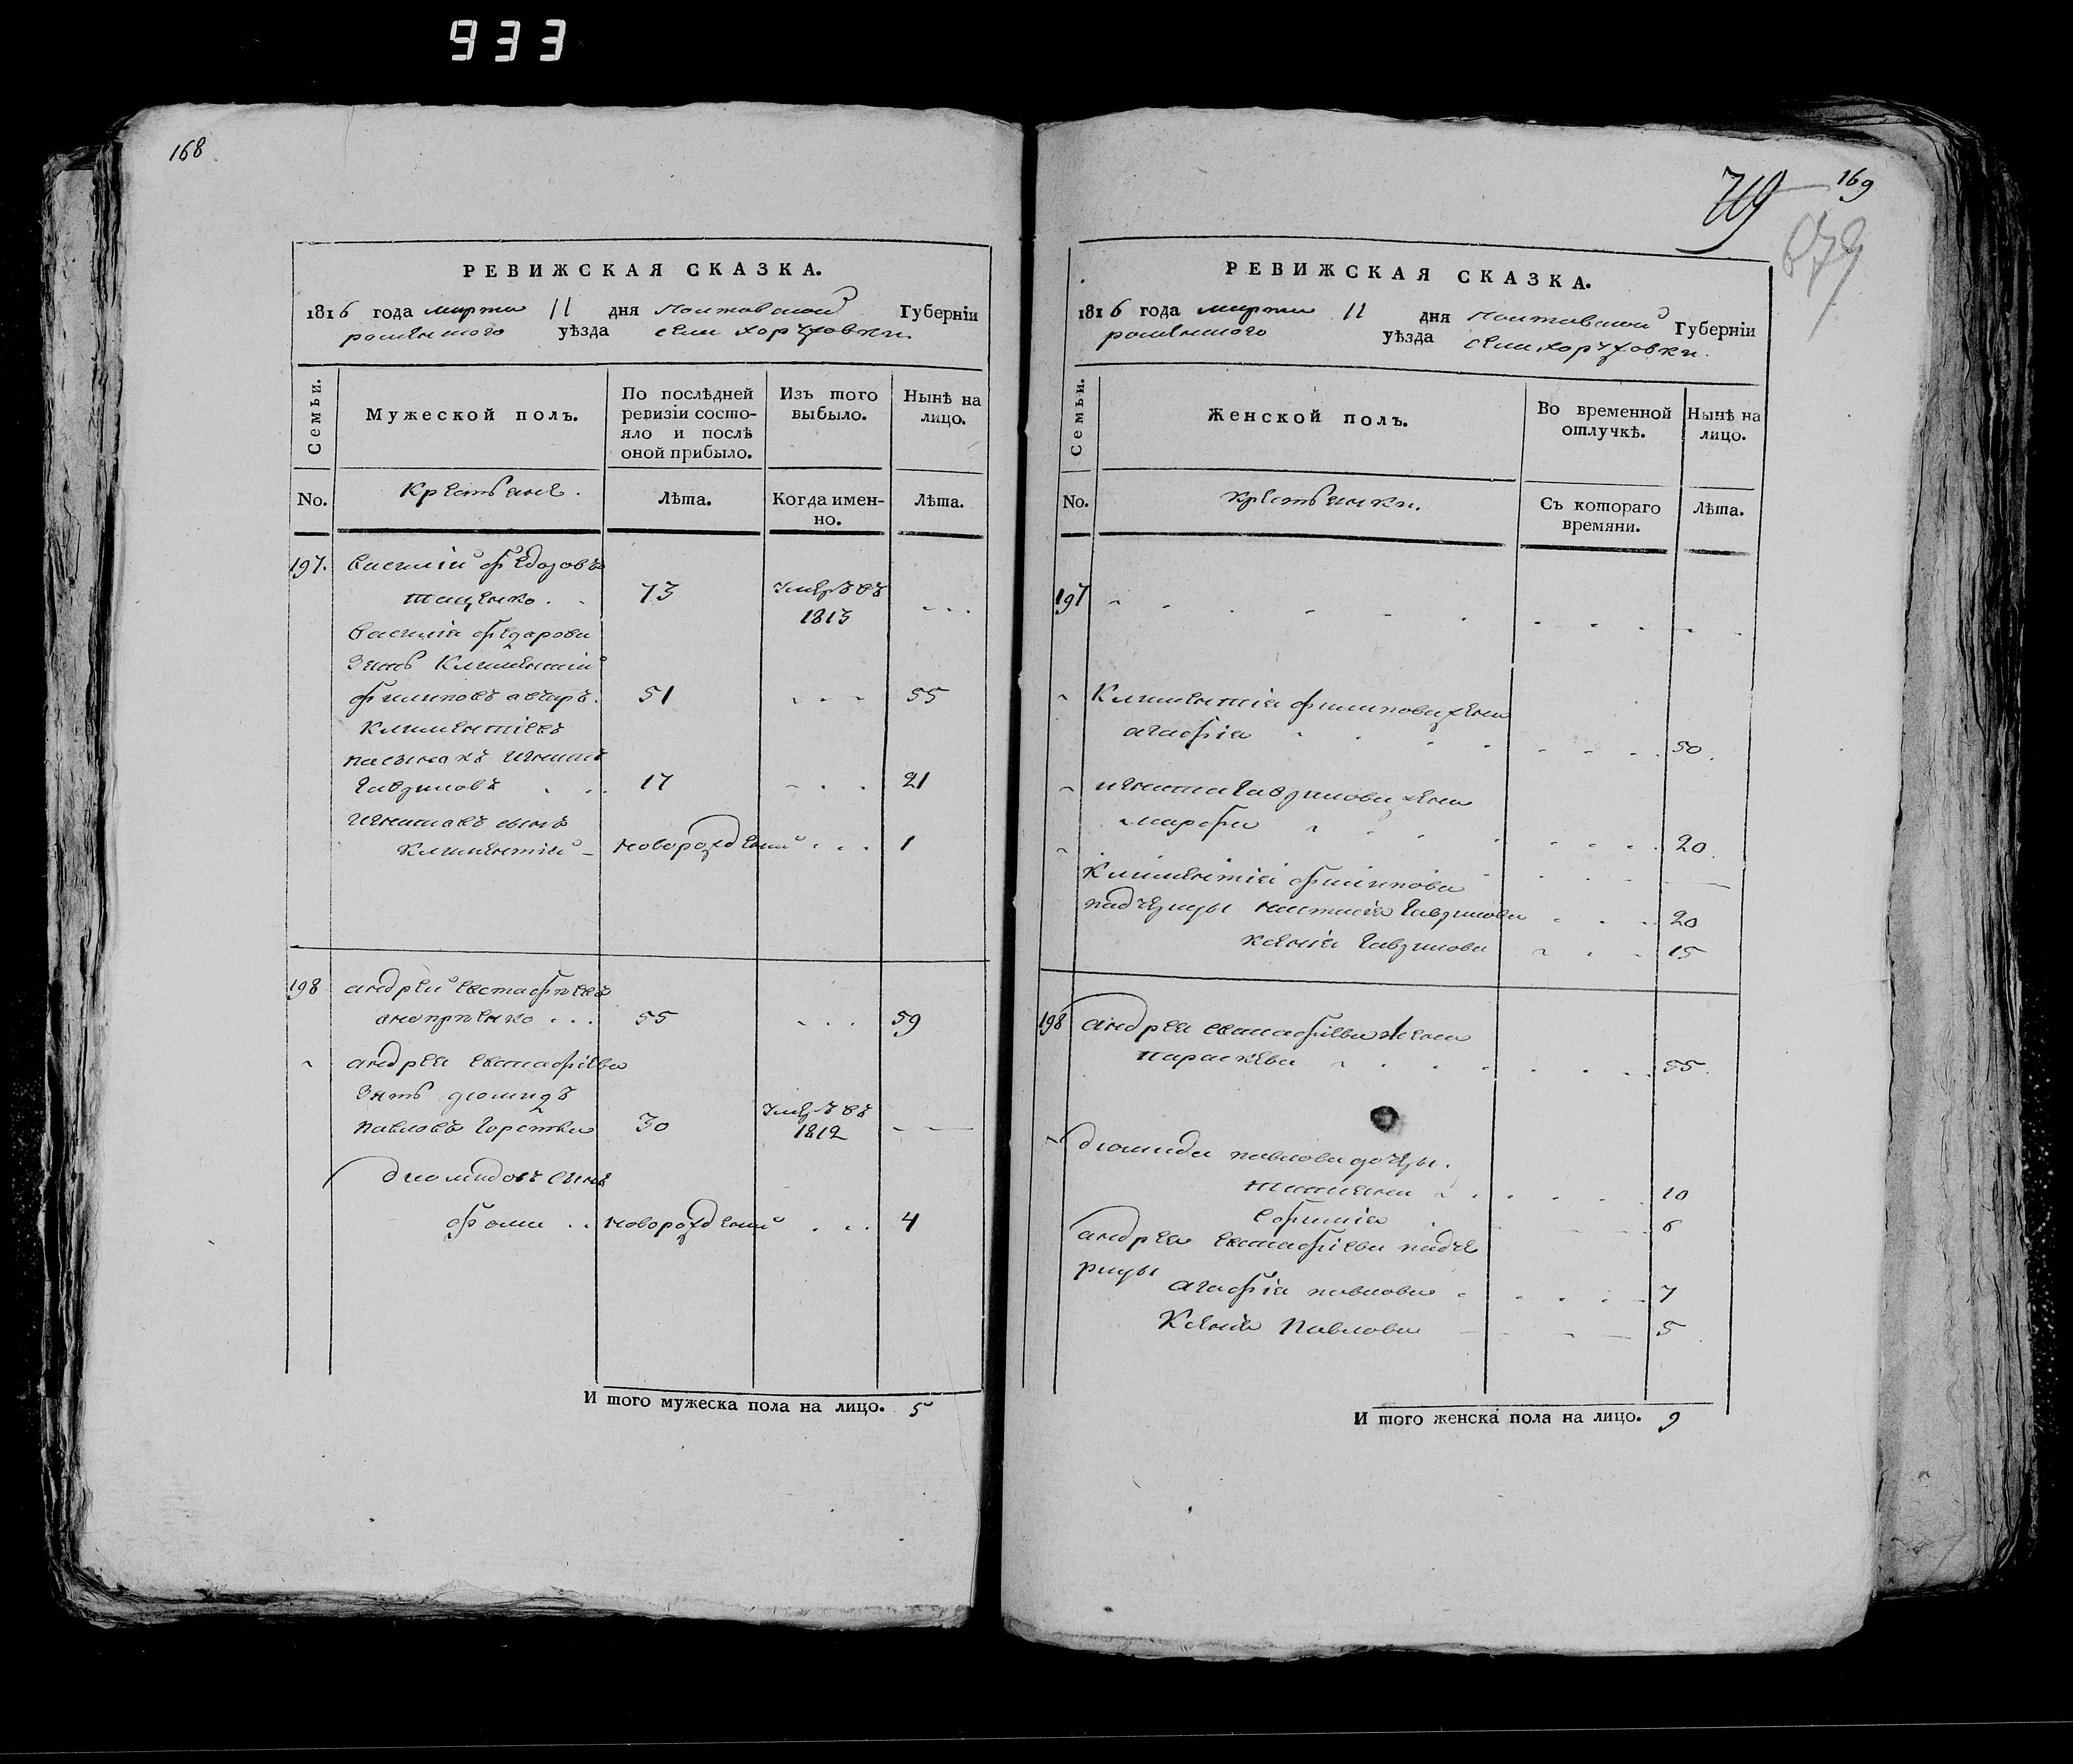 933
168
РЕВИЖСКАЯ СКАЗКА.
1816 года марта 11 дня полтавской Губернiи
роменского уѣзда села хоружовки.
Семьи.
Мужеской полъ.
По послѣдней ревизiи состояло и послѣ оной прибыло.
Изъ того выбыло.
Нынѣ на лицо.
No.
Крестьяне.
Лѣта.
Когда именно.
Лѣта.
197. василiй федоровъ
тащенко. 73 умеръ въ 1813
василiя федорова
зять климентiй
филиповъ 51 55
климентiевъ
пасынокъ игнатъ
гавриловъ 17 21
игнатовъ сынъ
климентiй новорожденый 1
198 андрей евстафiевъ
оноприенко 55 59
андрея евстафiева
зять диомидъ
павловъ 30 умеръ въ 1812
диомидовъ сынъ
фома новорожденый 4
И того мужеска пола на лицо. 5
719
169
679
РЕВИЖСКАЯ СКАЗКА.
1816 года марта 11 дня полтавской Губернiи
роменского уѣзда села хоружовки.
Семьи.
Женской полъ.
Во временной отлучкѣ.
Нынѣ на лицо.
No.
крестьянки.
Съ котораго времяни.
Лѣта.
197
климентiя филипова жена
агафiя 50.
игната гаврилова жена
марфа 20.
климентiя филипова
падчерицы настасiя гаврилова 20
ксенiя гаврилова 15
198 андрея евстафiева жена
параскева 55.
диомида павлова дочери.
татияна 10
софия 6
андрея евстафiева падче
рицы агафiя павлова 7
Ксенiя Павлова 5
И того женска пола на лицо. 9